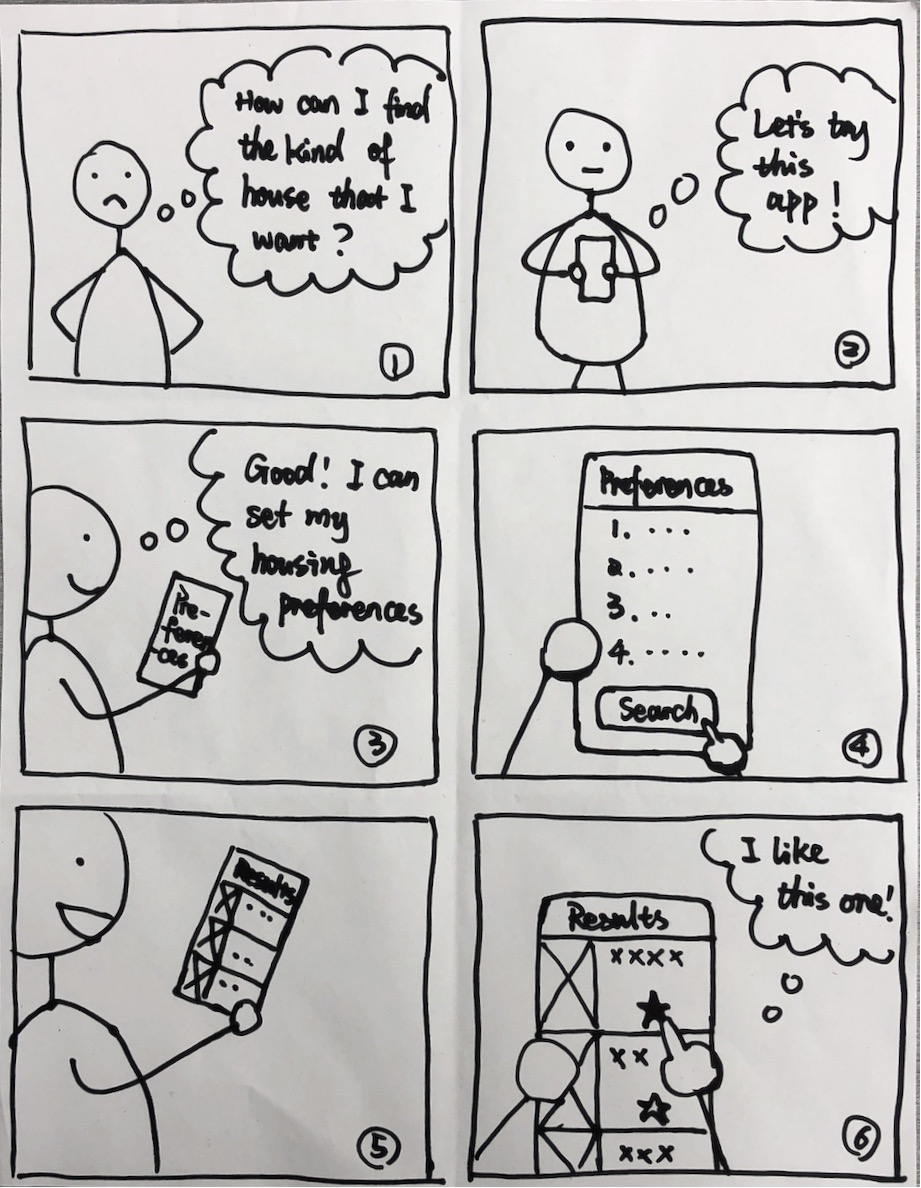 How can I find
the kind of
house that I
want?
1
Let's try
this
app!
2
Good! I can
set my
housing
preferences
Pre-
feren
-ces
3
Preferences
1. ....
2. ....
3. ...
4. .....
Search
4
Results
...
..
..
5
I like
this one!
Results
xxxx
xx
xxx
6